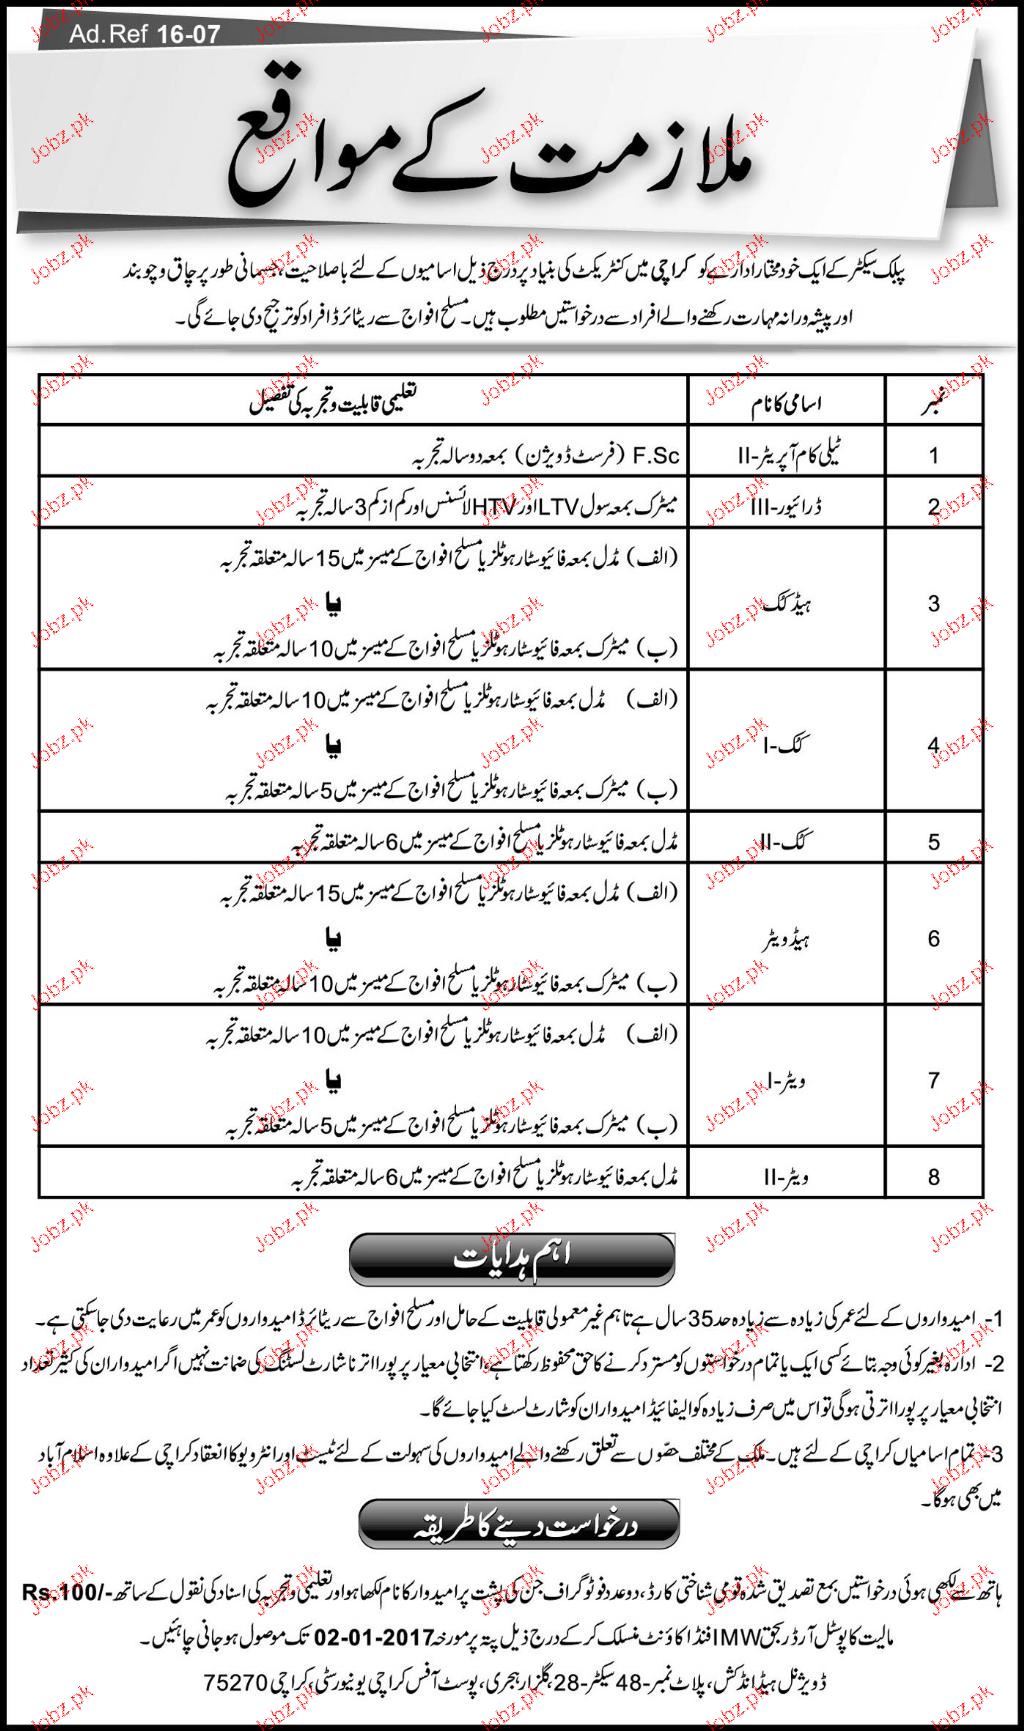 Ad.Ref 16-07
ملازمت کے مواقع
پبلک سیکٹر کے ایک خودمختار ادارے کو کراچی میں کنٹریکٹ کی بنیاد پر درج ذیل اسامیوں کے لئے باصلاحیت، جسمانی طور پر چاق و چوبند
اور پیشہ ورانہ مہارت رکھنے والے افراد سے درخواستیں مطلوب ہیں۔ مسلح افواج سے ریٹائرڈ افراد کو ترجیح دی جائے گی۔
نمبر اسامی کا نام تعلیمی قابلیت و تجربہ کی تفصیل
1 ٹیلی کام آپریٹر-II F.Sc (فرسٹ ڈویژن) بمعہ دو سالہ تجربہ
2 ڈرائیور-III میٹرک بمعہ سول LTV اور HTV لائسنس اور کم از کم 3 سالہ تجربہ
3 ہیڈ کک (الف) مڈل بمعہ فائیو سٹار ہوٹلز یا مسلح افواج کے میسز میں 15 سالہ متعلقہ تجربہ
یا
(ب) میٹرک بمعہ فائیو سٹار ہوٹلز یا مسلح افواج کے میسز میں 10 سالہ متعلقہ تجربہ
4 کک-I (الف) مڈل بمعہ فائیو سٹار ہوٹلز یا مسلح افواج کے میسز میں 10 سالہ متعلقہ تجربہ
یا
(ب) میٹرک بمعہ فائیو سٹار ہوٹلز یا مسلح افواج کے میسز میں 5 سالہ متعلقہ تجربہ
5 کک-II مڈل بمعہ فائیو سٹار ہوٹلز یا مسلح افواج کے میسز میں 6 سالہ متعلقہ تجربہ
6 ہیڈ ویٹر (الف) مڈل بمعہ فائیو سٹار ہوٹلز یا مسلح افواج کے میسز میں 15 سالہ متعلقہ تجربہ
یا
(ب) میٹرک بمعہ فائیو سٹار ہوٹلز یا مسلح افواج کے میسز میں 10 سالہ متعلقہ تجربہ
7 ویٹر-I (الف) مڈل بمعہ فائیو سٹار ہوٹلز یا مسلح افواج کے میسز میں 10 سالہ متعلقہ تجربہ
یا
(ب) میٹرک بمعہ فائیو سٹار ہوٹلز یا مسلح افواج کے میسز میں 5 سالہ متعلقہ تجربہ
8 ویٹر-II مڈل بمعہ فائیو سٹار ہوٹلز یا مسلح افواج کے میسز میں 6 سالہ متعلقہ تجربہ
اہم ہدایات
1- امیدواروں کے لئے عمر کی زیادہ سے زیادہ حد 35 سال ہے تاہم غیر معمولی قابلیت کے حامل اور مسلح افواج سے ریٹائرڈ امیدواروں کو عمر میں رعایت دی جاسکتی ہے۔
2- ادارہ بغیر کوئی وجہ بتائے کسی ایک یا تمام درخواستوں کو مسترد کرنے کا حق محفوظ رکھتا ہے، انتخابی معیار پر پورا اترنا شارٹ لسٹنگ کی ضمانت نہیں اگر امیدواران کی کثیر تعداد
انتخابی معیار پر پورا اترتی ہوگی تو اس میں صرف زیادہ کوالیفائیڈ امیدواران کو شارٹ لسٹ کیا جائے گا۔
3- تمام اسامیاں کراچی کے لئے ہیں۔ ملک کے مختلف حصّوں سے تعلق رکھنے والے امیدواروں کی سہولت کے لئے ٹیسٹ اور انٹرویو کا انعقاد کراچی کے علاوہ اسلام آباد
میں بھی ہوگا۔
درخواست دینے کا طریقہ
ہاتھ سے لکھی ہوئی درخواستیں بمع تصدیق شدہ قومی شناختی کارڈ، دو عدد فوٹوگراف جن کی پشت پر امیدوار کا نام لکھا ہو اور تعلیمی و تجربہ کی اسناد کی نقول کے ساتھ Rs.100/-
مالیت کا پوسٹل آرڈر بحق IMW فنڈ اکاؤنٹ منسلک کر کے درج ذیل پتہ پر مورخہ 02-01-2017 تک موصول ہو جانی چاہئیں۔
ڈویژنل ہیڈ انڈکش، پلاٹ نمبر-48 سیکٹر-28، گلزار ہجری، پوسٹ آفس کراچی یونیورسٹی، کراچی 75270